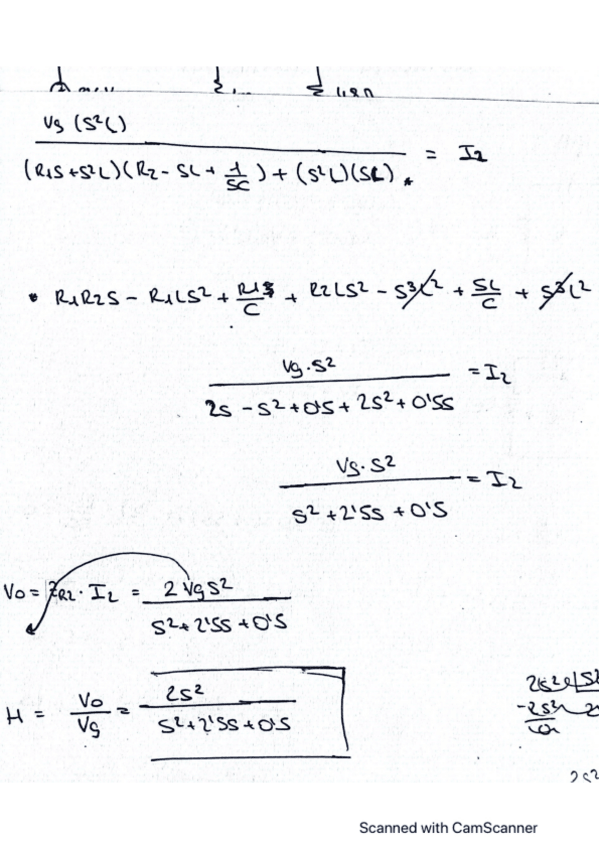 Vg (S²L)
/ (R1S+S²L)(R2-SL+1/SC)+(S²L)(SL)* = I2
* R1R2S - R1LS² + R1S/C + R2LS² - S³L² + SL/C + S³L²
Vg·S² / 2S-S²+0'5+2S²+0'5S = I2
Vg·S² / S²+2'5S+0'5 = I2
Vo = ZR2 · I2 = 2VgS² / S²+2'5S+0'5
H = Vo/Vg = 2S² / S²+2'5S+0'5
Scanned with CamScanner